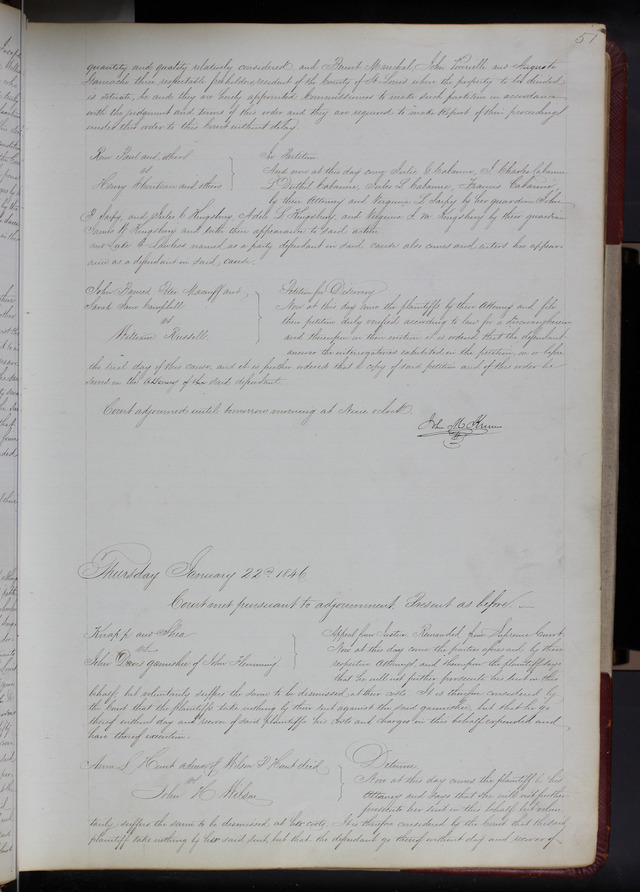 51
quantity and quality relatively considered and
three respectable freeholders resident of the County of St Louis where the property to be divided
is situate, be and they are hereby appointed Commissioners to make such partition in accordance
with the judgment and terms of this order and they are required to make report of their proceedings
under this order to this Court without delay.
Rene Paul and others
vs
Henry Chouteau and others
In Partition
And now at this day come Julia C Cabanne, J Charles Cabanne
L Duthil Cabanne, Jules L Cabanne, Francis Cabanne
by their Attorney and Virginia L Sarpy by her guardian John
B Sarpy, and Jules C Kingsbury, Adele L Kingsbury, and Virginia S M Kingsbury by their guardian
James W Kingsbury and enter their appearance to said action
and named as a party defendant in said cause also comes and enters his appear-
ance as a defendant in said cause.
John
Sarah Jane Campbell
vs
William Russell
Petition for Discovery
Now at this day come the plaintiffs by their Attorney and file
their petition duly verified according to law for a discovery herein
and thereupon on their motion it is ordered that the defendant
answer the interrogatories exhibited in the petition, on or before
the trial day of this cause, and it is further ordered that a copy of said petition and of this order be
served in the absence of the said defendant.
Court adjourned until tomorrow morning at Nine oclock.
Jno M Krum
Thursday January 22nd 1846
Court met pursuant to adjournment. Present as before.
Knapp and Shea
vs
John Davis garnishee of John Flemming
Appeal from Justice Remanded from Supreme Court.
Now at this day come the parties aforesaid by their
respective Attorneys, and thereupon the plaintiffs say
that he will not further prosecute his suit in this
behalf, but voluntarily suffers the same to be dismissed at their costs. It is therefore considered by
the Court that the plaintiffs take nothing by their suit against the said garnishee, but that he go
thereof without day and recover of said plaintiffs his costs and charges in this behalf expended and
have thereof execution.
Anne L Hunt admx of Wilson P Hunt decd
vs
John H Wilson
Detinue
Now at this day comes the plaintiff by her
Attorney and says that she will not further
prosecute her suit in this behalf but volun-
tarily suffers the same to be dismissed at her costs. It is therefore considered by the Court that the said
plaintiff take nothing by her said suit, but that the defendant go thereof without day and recover of